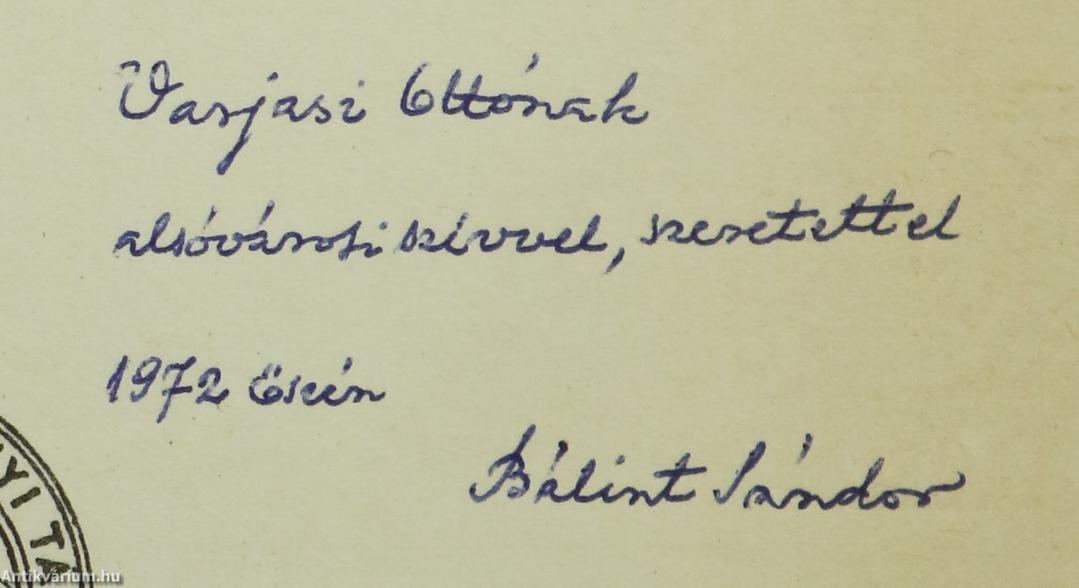 Varjasi Ottónak
alsóvárosi szívvel, szeretettel
1972 őszén
Bálint Sándor
YI TA
Antikvárium.hu